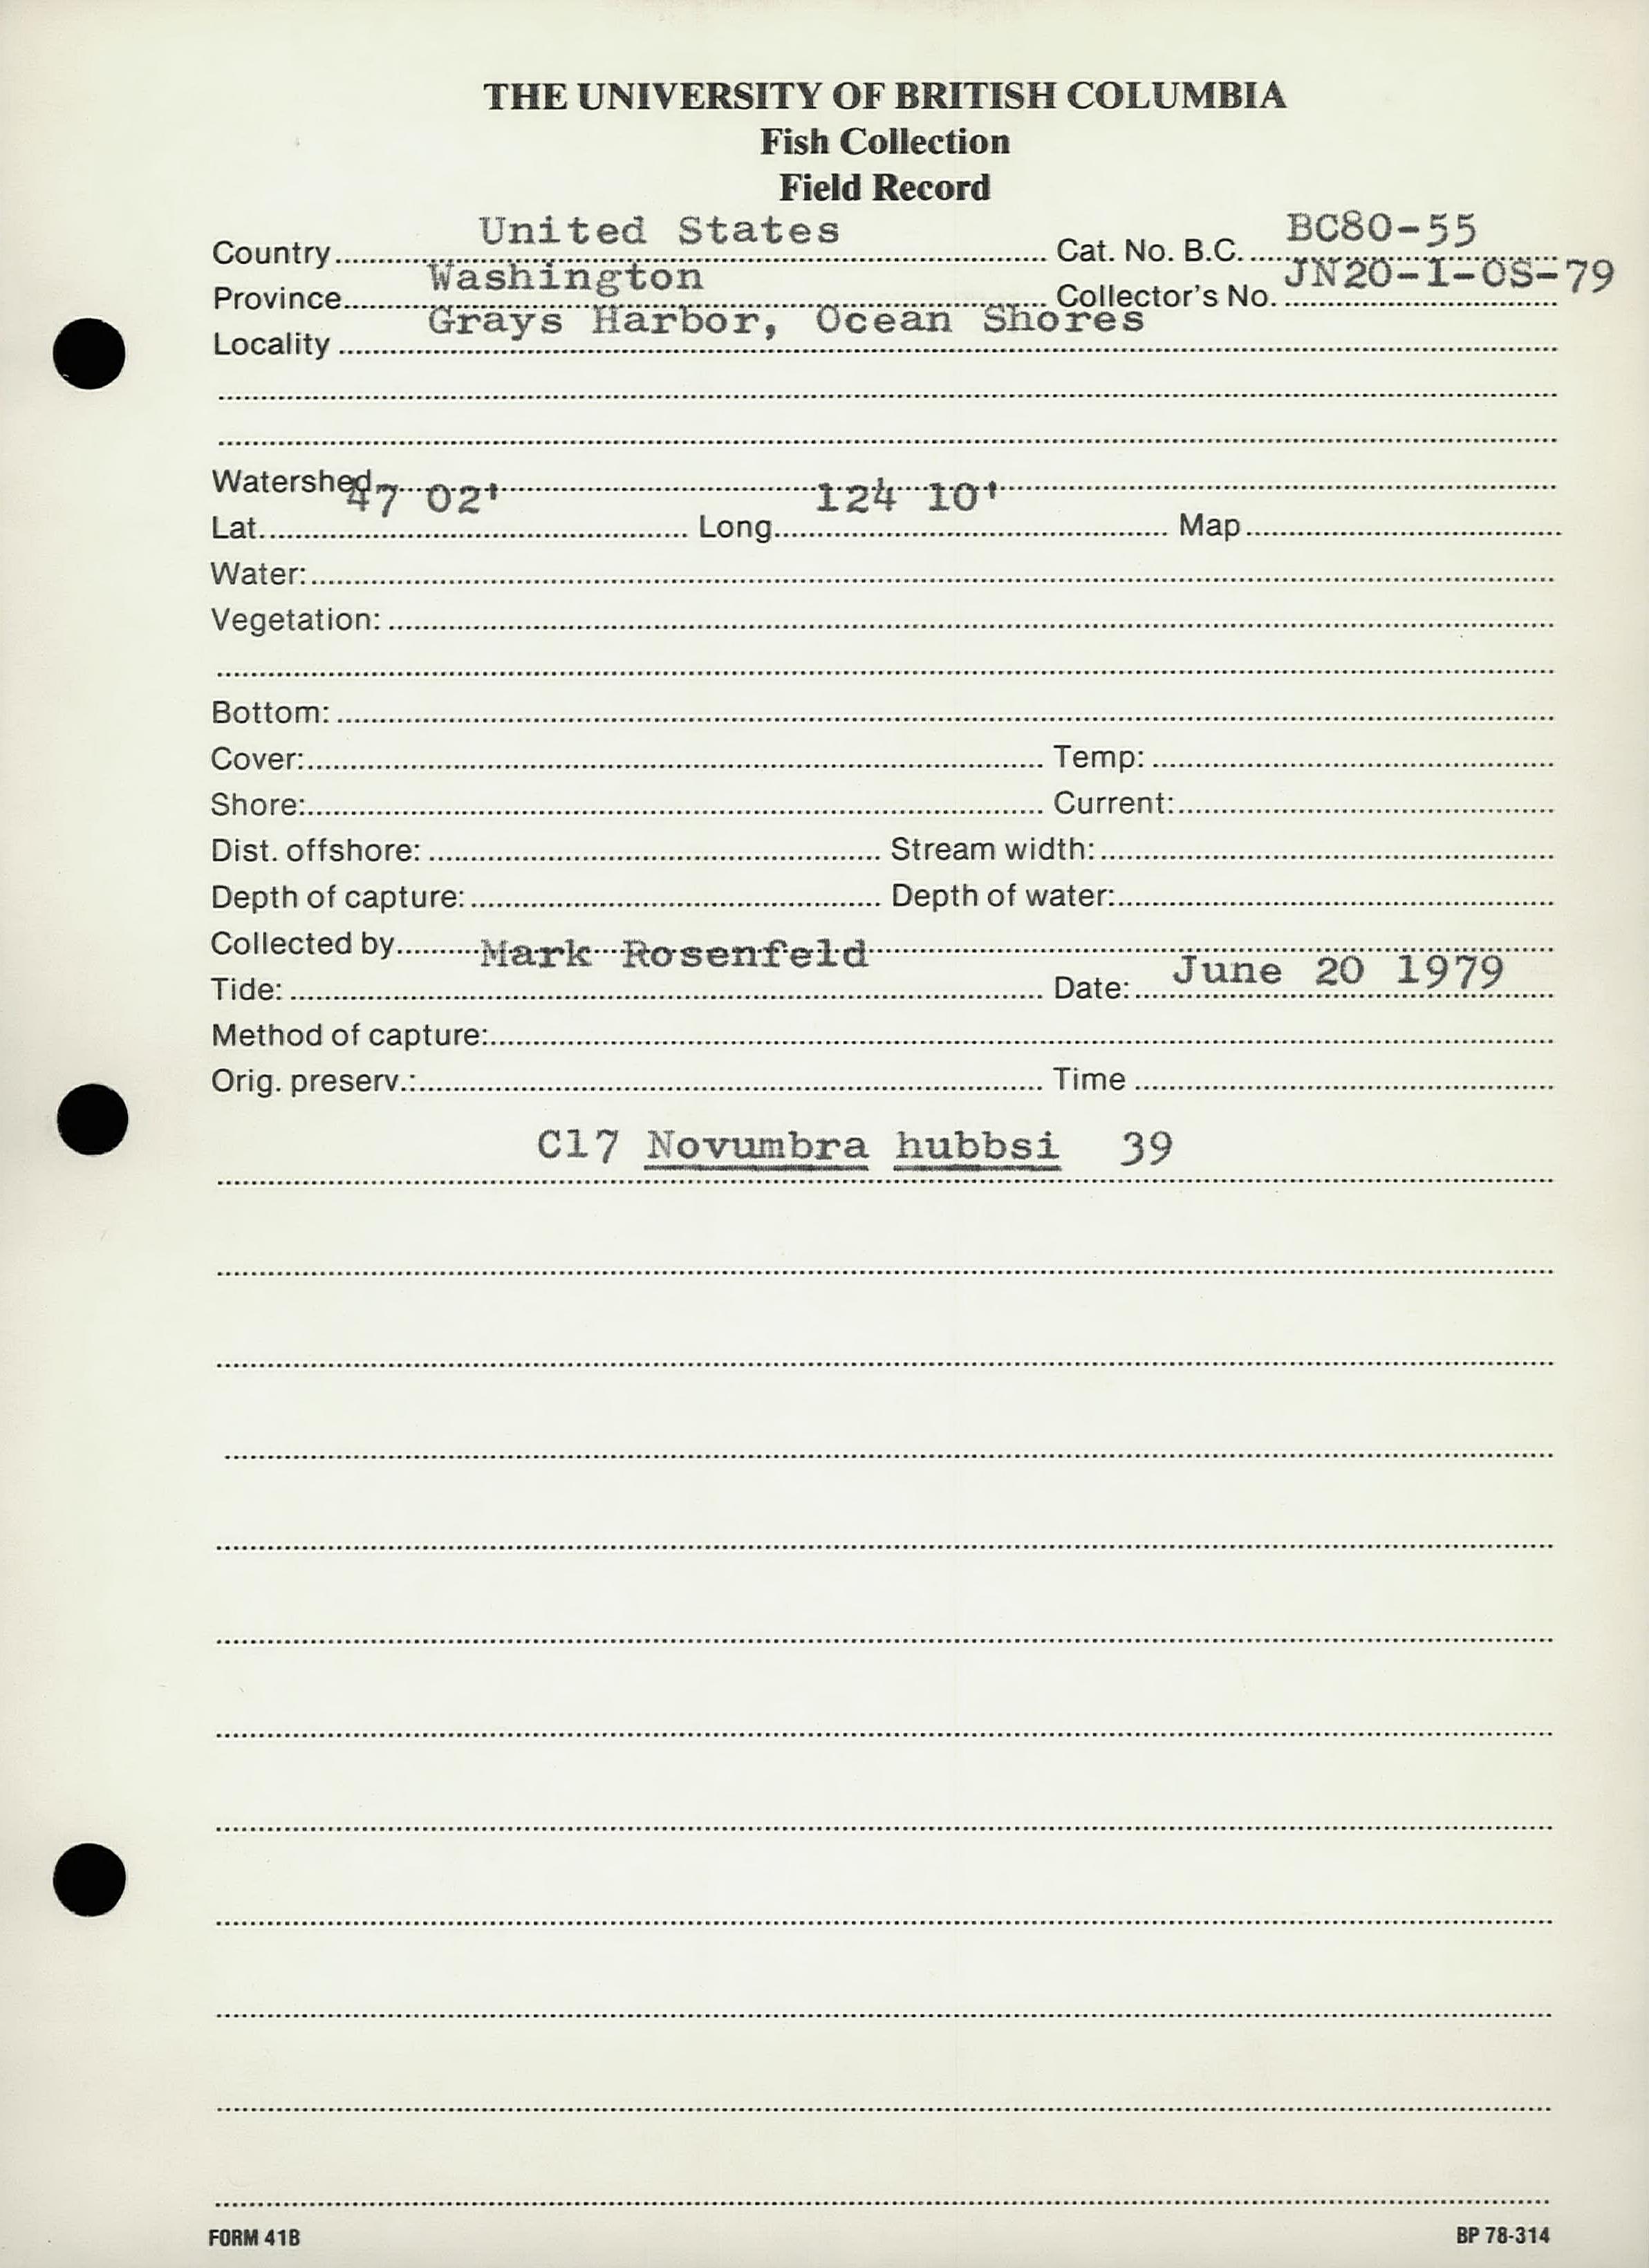 THE UNIVERSITY OF BRITISH COLUMBIA
Fish Collection
Field Record
Country United States Cat. No. B.C. BC80-55
Province Washington Collector's No. JN20-1-OS-79
Locality Grays Harbor, Ocean Shores
Watershed
Lat. 47 02' Long. 124 10' Map
Water:
Vegetation:
Bottom:
Cover: Temp:
Shore: Current:
Dist. offshore: Stream width:
Depth of capture: Depth of water:
Collected by Mark Rosenfeld
Tide: Date: June 20 1979
Method of capture:
Orig. preserv.: Time
C17 Novumbra hubbsi 39
FORM 41B BP 78-314